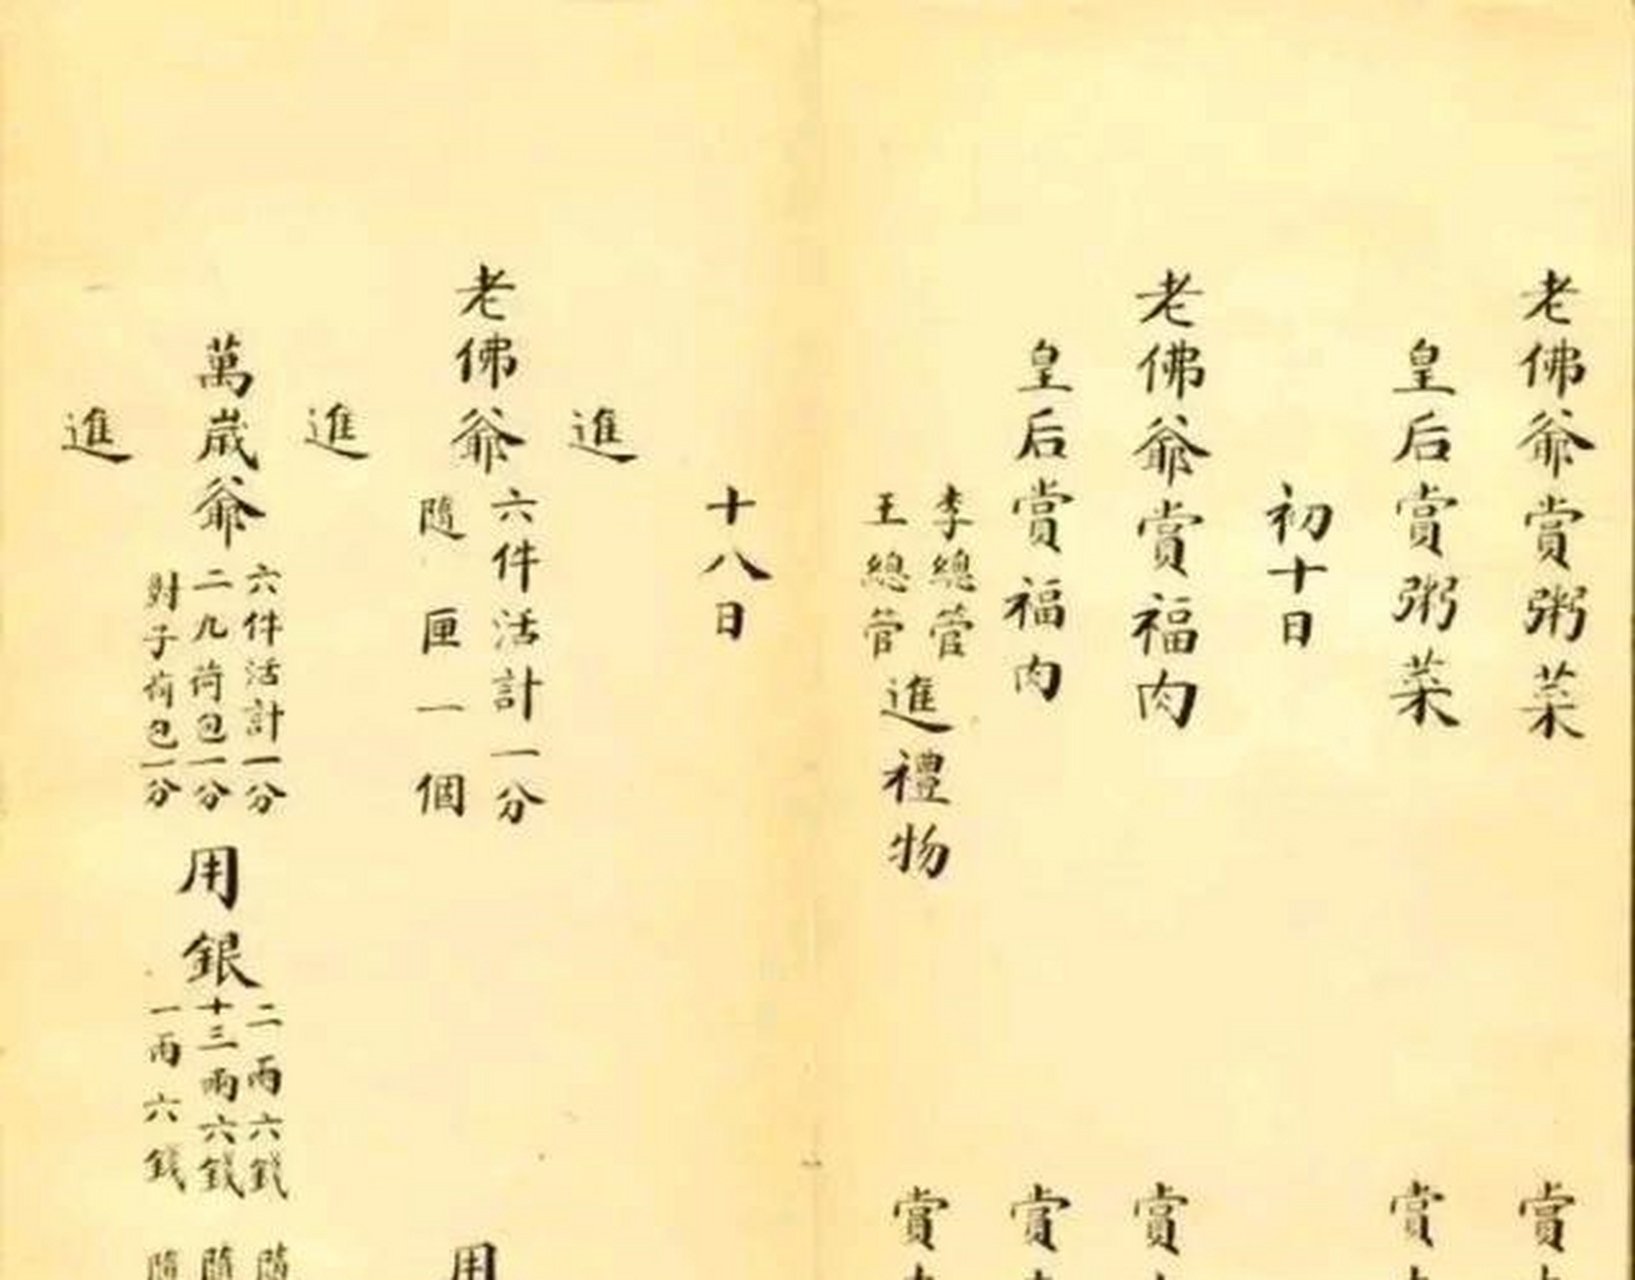 老佛爺賞粥菜 賞
皇后賞粥菜 賞
初十日
老佛爺賞福肉 賞
皇后賞福肉 賞
李總管
王總管
進禮物 賞
十八日
進
老佛爺
六件活計一分
隨匣一個
用
進
萬歲爺
六件活計一分
二九荷包一分
對子荷包一分
用銀
二兩六錢 隨
十三兩六錢 隨
一兩六錢 隨
進